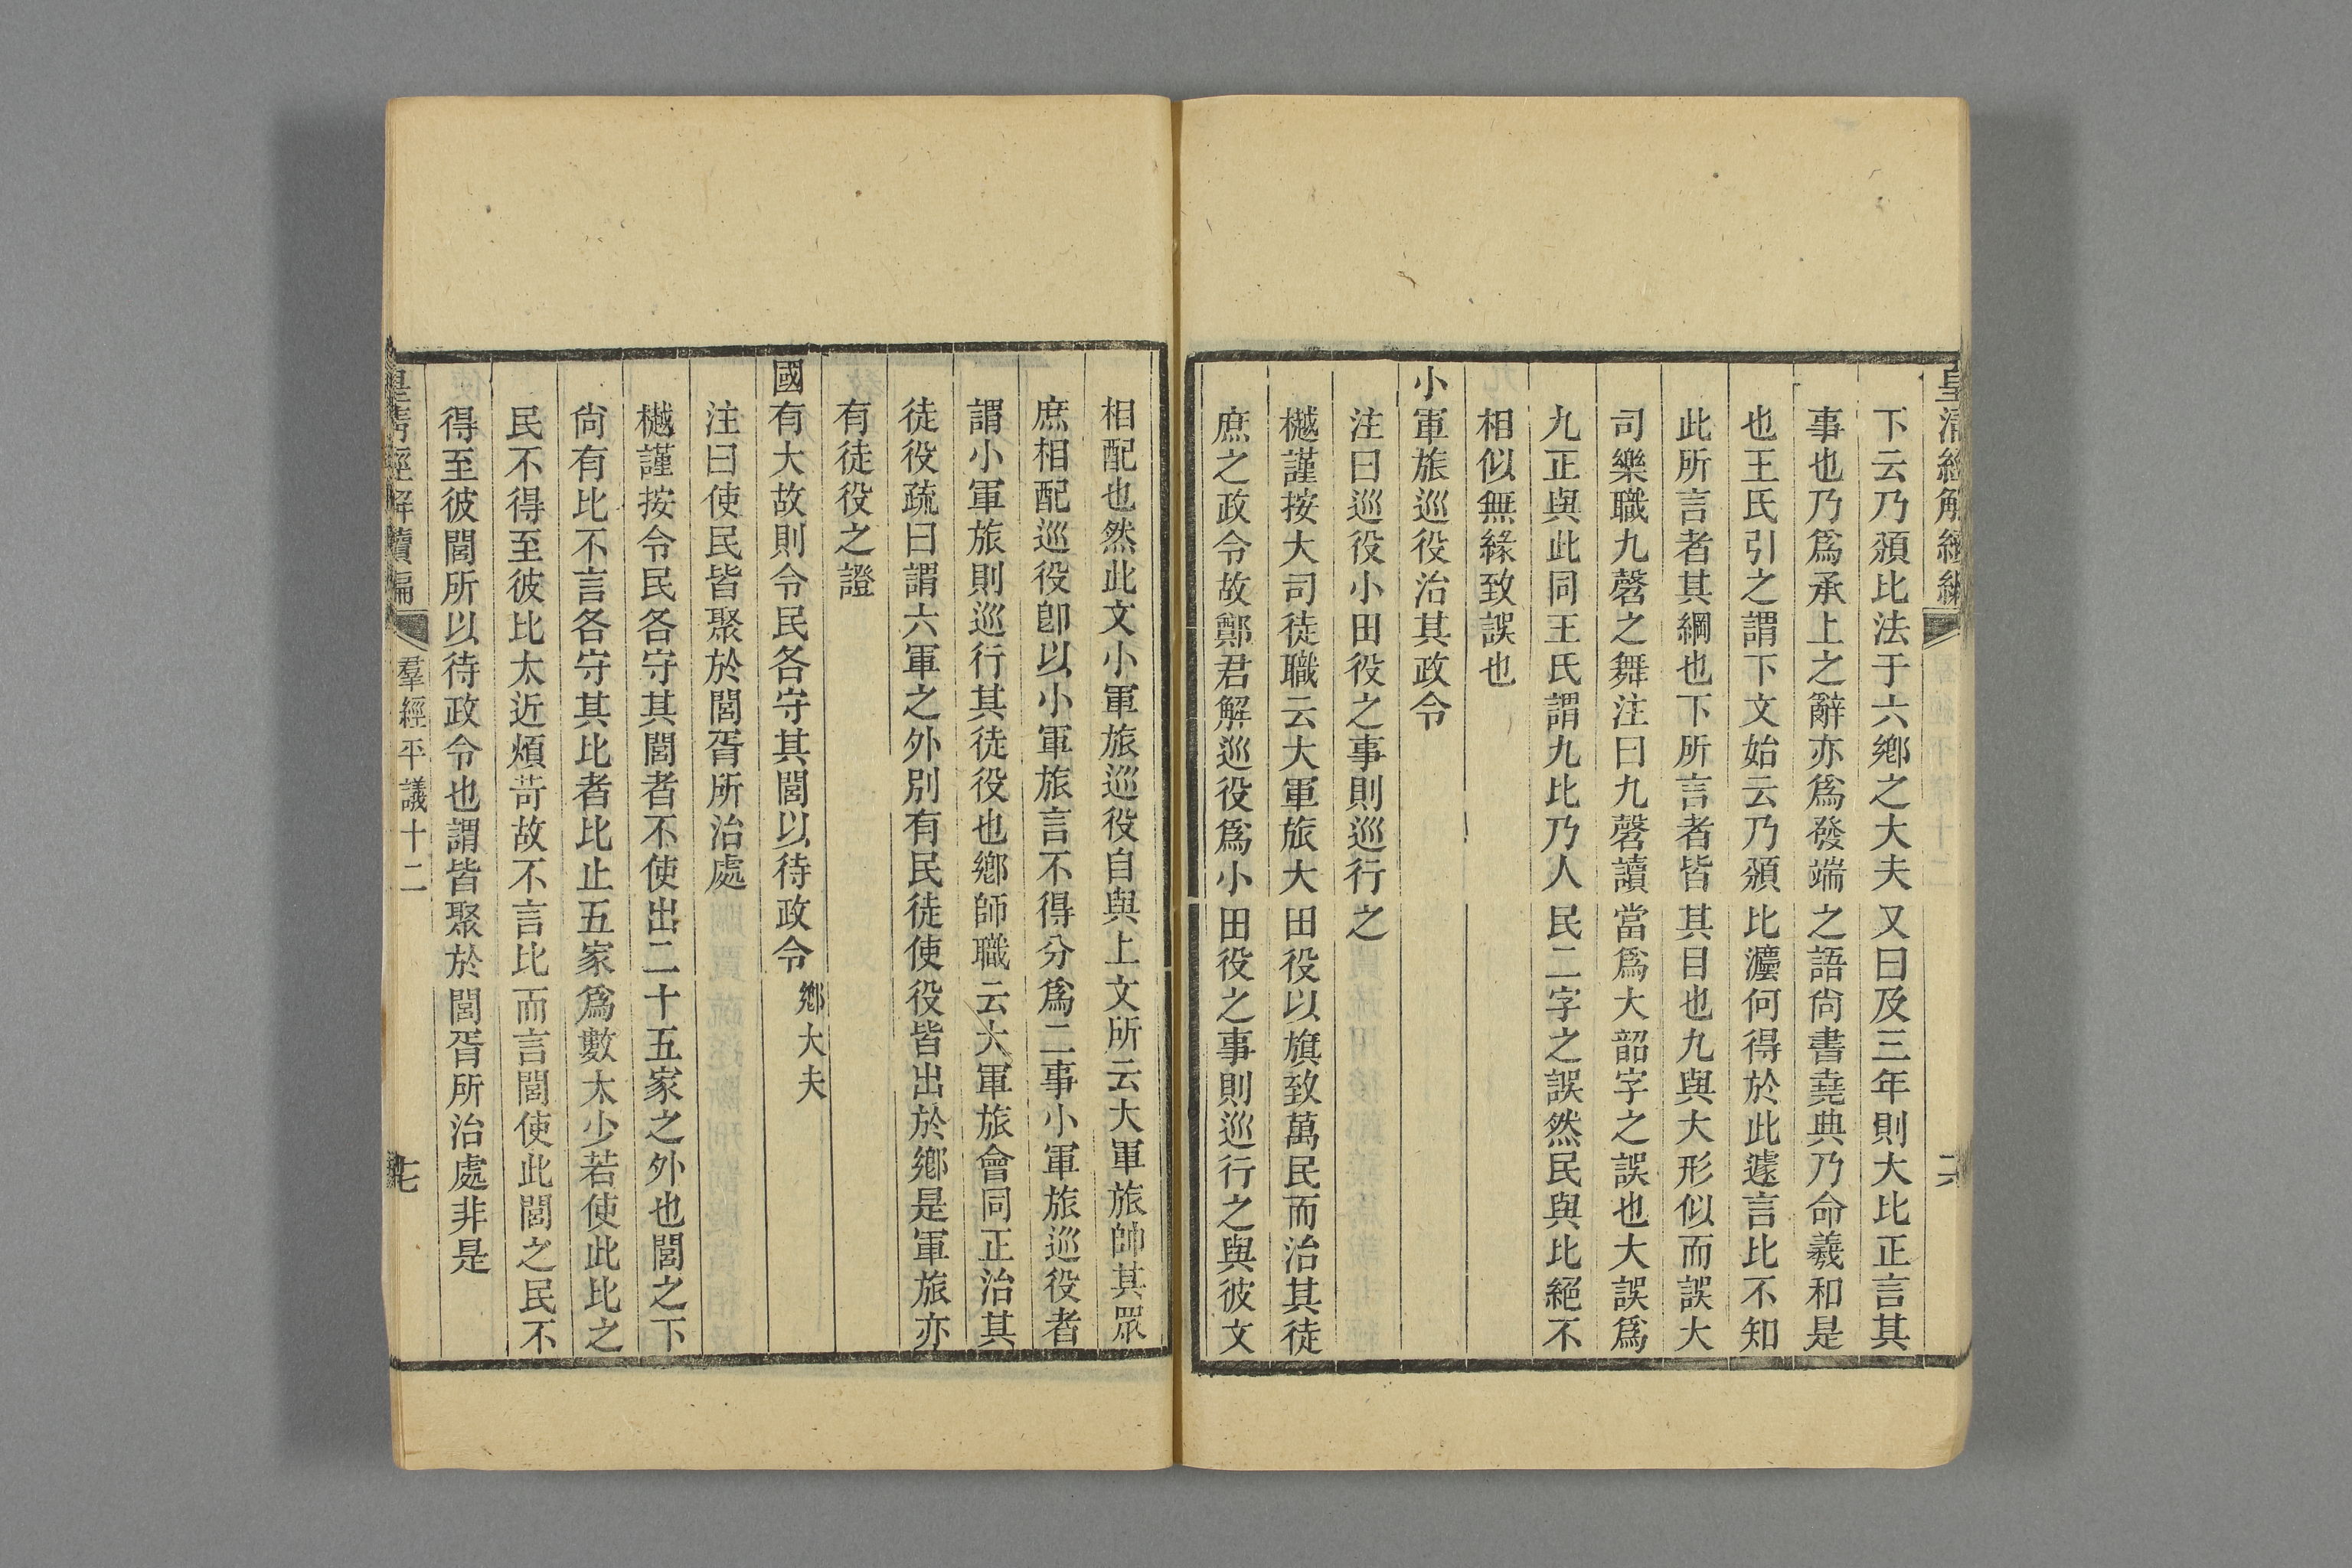 皇清經解續編
六
下云乃頒比法于六鄉之大夫又曰及三年則大比正言其
事也乃爲承上之辭亦爲發端之語尙書堯典乃命羲和是
也王氏引之謂下文始云乃頒比灋何得於此遽言比不知
此所言者其綱也下所言者皆其目也九與大形似而誤大
司樂職九㲈之舞注曰九㲈讀當爲大韶字之誤也大誤爲
九正與此同王氏謂九比乃人民二字之誤然民與比絕不
相似無緣致誤也
小軍旅巡役治其政令
注曰巡役小田役之事則巡行之
樾謹按大司徒職云大軍旅大田役以旗致萬民而治其徒
庶之政令故鄭君解巡役爲小田役之事則巡行之與彼文
相配也然此文小軍旅巡役自與上文所云大軍旅帥其眾
庶相配巡役卽以小軍旅言不得分爲二事小軍旅巡役者
謂小軍旅則巡行其徒役也鄉師職云大軍旅會同正治其
徒役疏曰謂六軍之外別有民徒使役皆出於鄉是軍旅亦
有徒役之證
國有大故則令民各守其閭以待政令 鄉大夫
注曰使民皆聚於閭胥所治處
樾謹按令民各守其閭者不使出二十五家之外也閭之下
尙有比不言各守其比者比止五家爲數太少若使此比之
民不得至彼比太近煩苛故不言比而言閭使此閭之民不
得至彼閭所以待政令也謂皆聚於閭胥所治處非是
皇清經解續編
羣經平議十二
七